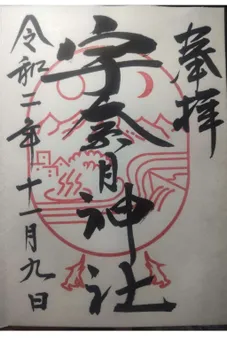 奉拝
宇奈月神社
令和二年十一月九日